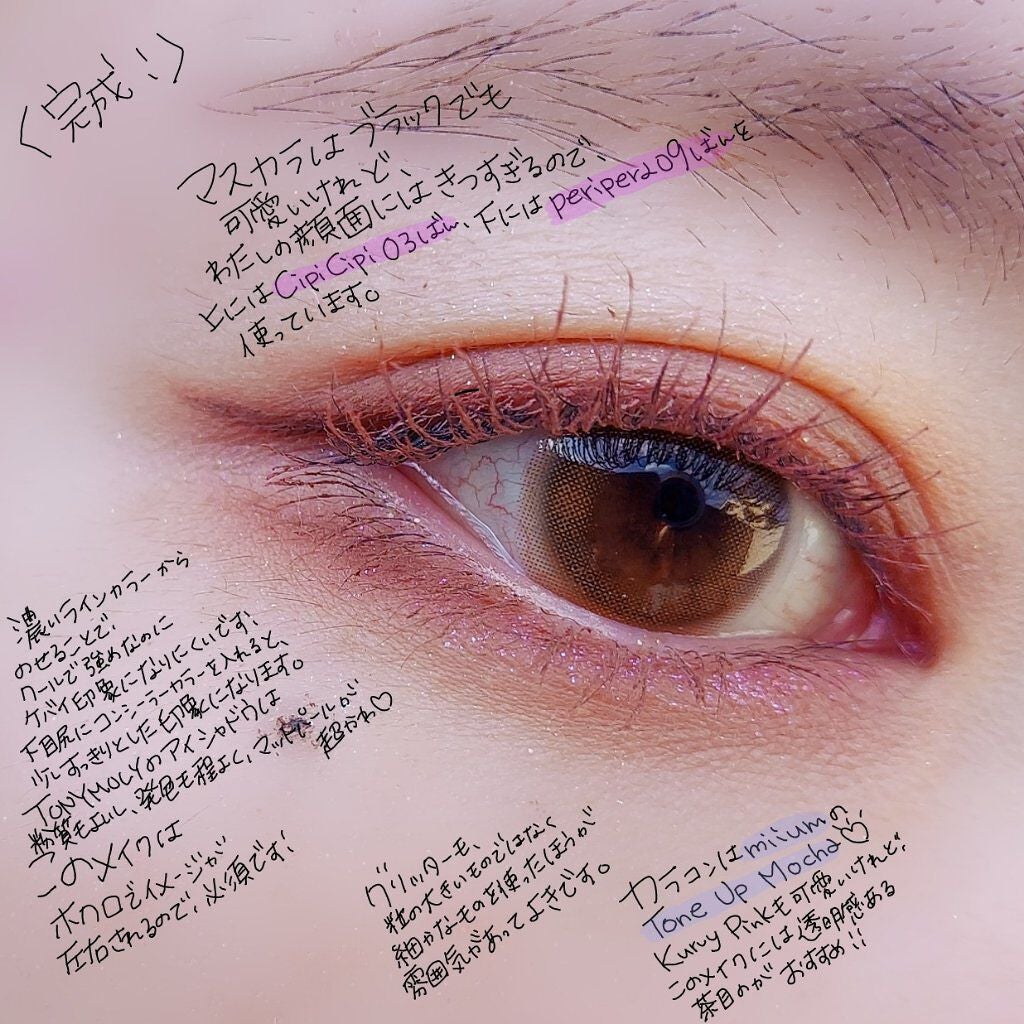 〈完成!!〉
マスカラはブラックでも
可愛いけれど、
わたしの顔面にはきつすぎるので、
上にはCipiCipi 03ばん、下にはperipera09ばんを
使っています。
濃いラインカラーから
のせることで、
クールで強めなのに
ケバイ印象になりにくいです、
下目尻にコンシーラーカラーを入れると、
少しすっきりとした印象になります。
TONYMOLYのアイシャドウは
粉質もよいし、発色も程よく、マットもパールが
超かわ♡
このメイクは
ホクロでイメージが
左右されるので、必須です!
グリッターも、
粒の大きいものではなく
細かなものを使ったほうが
雰囲気があってよきです。
カラコンはmiiumの
Tone Up Mocha♡、
Kuruy Pinkも可愛いけれど、
このメイクには透明感ある
茶目のが おすすめ!!